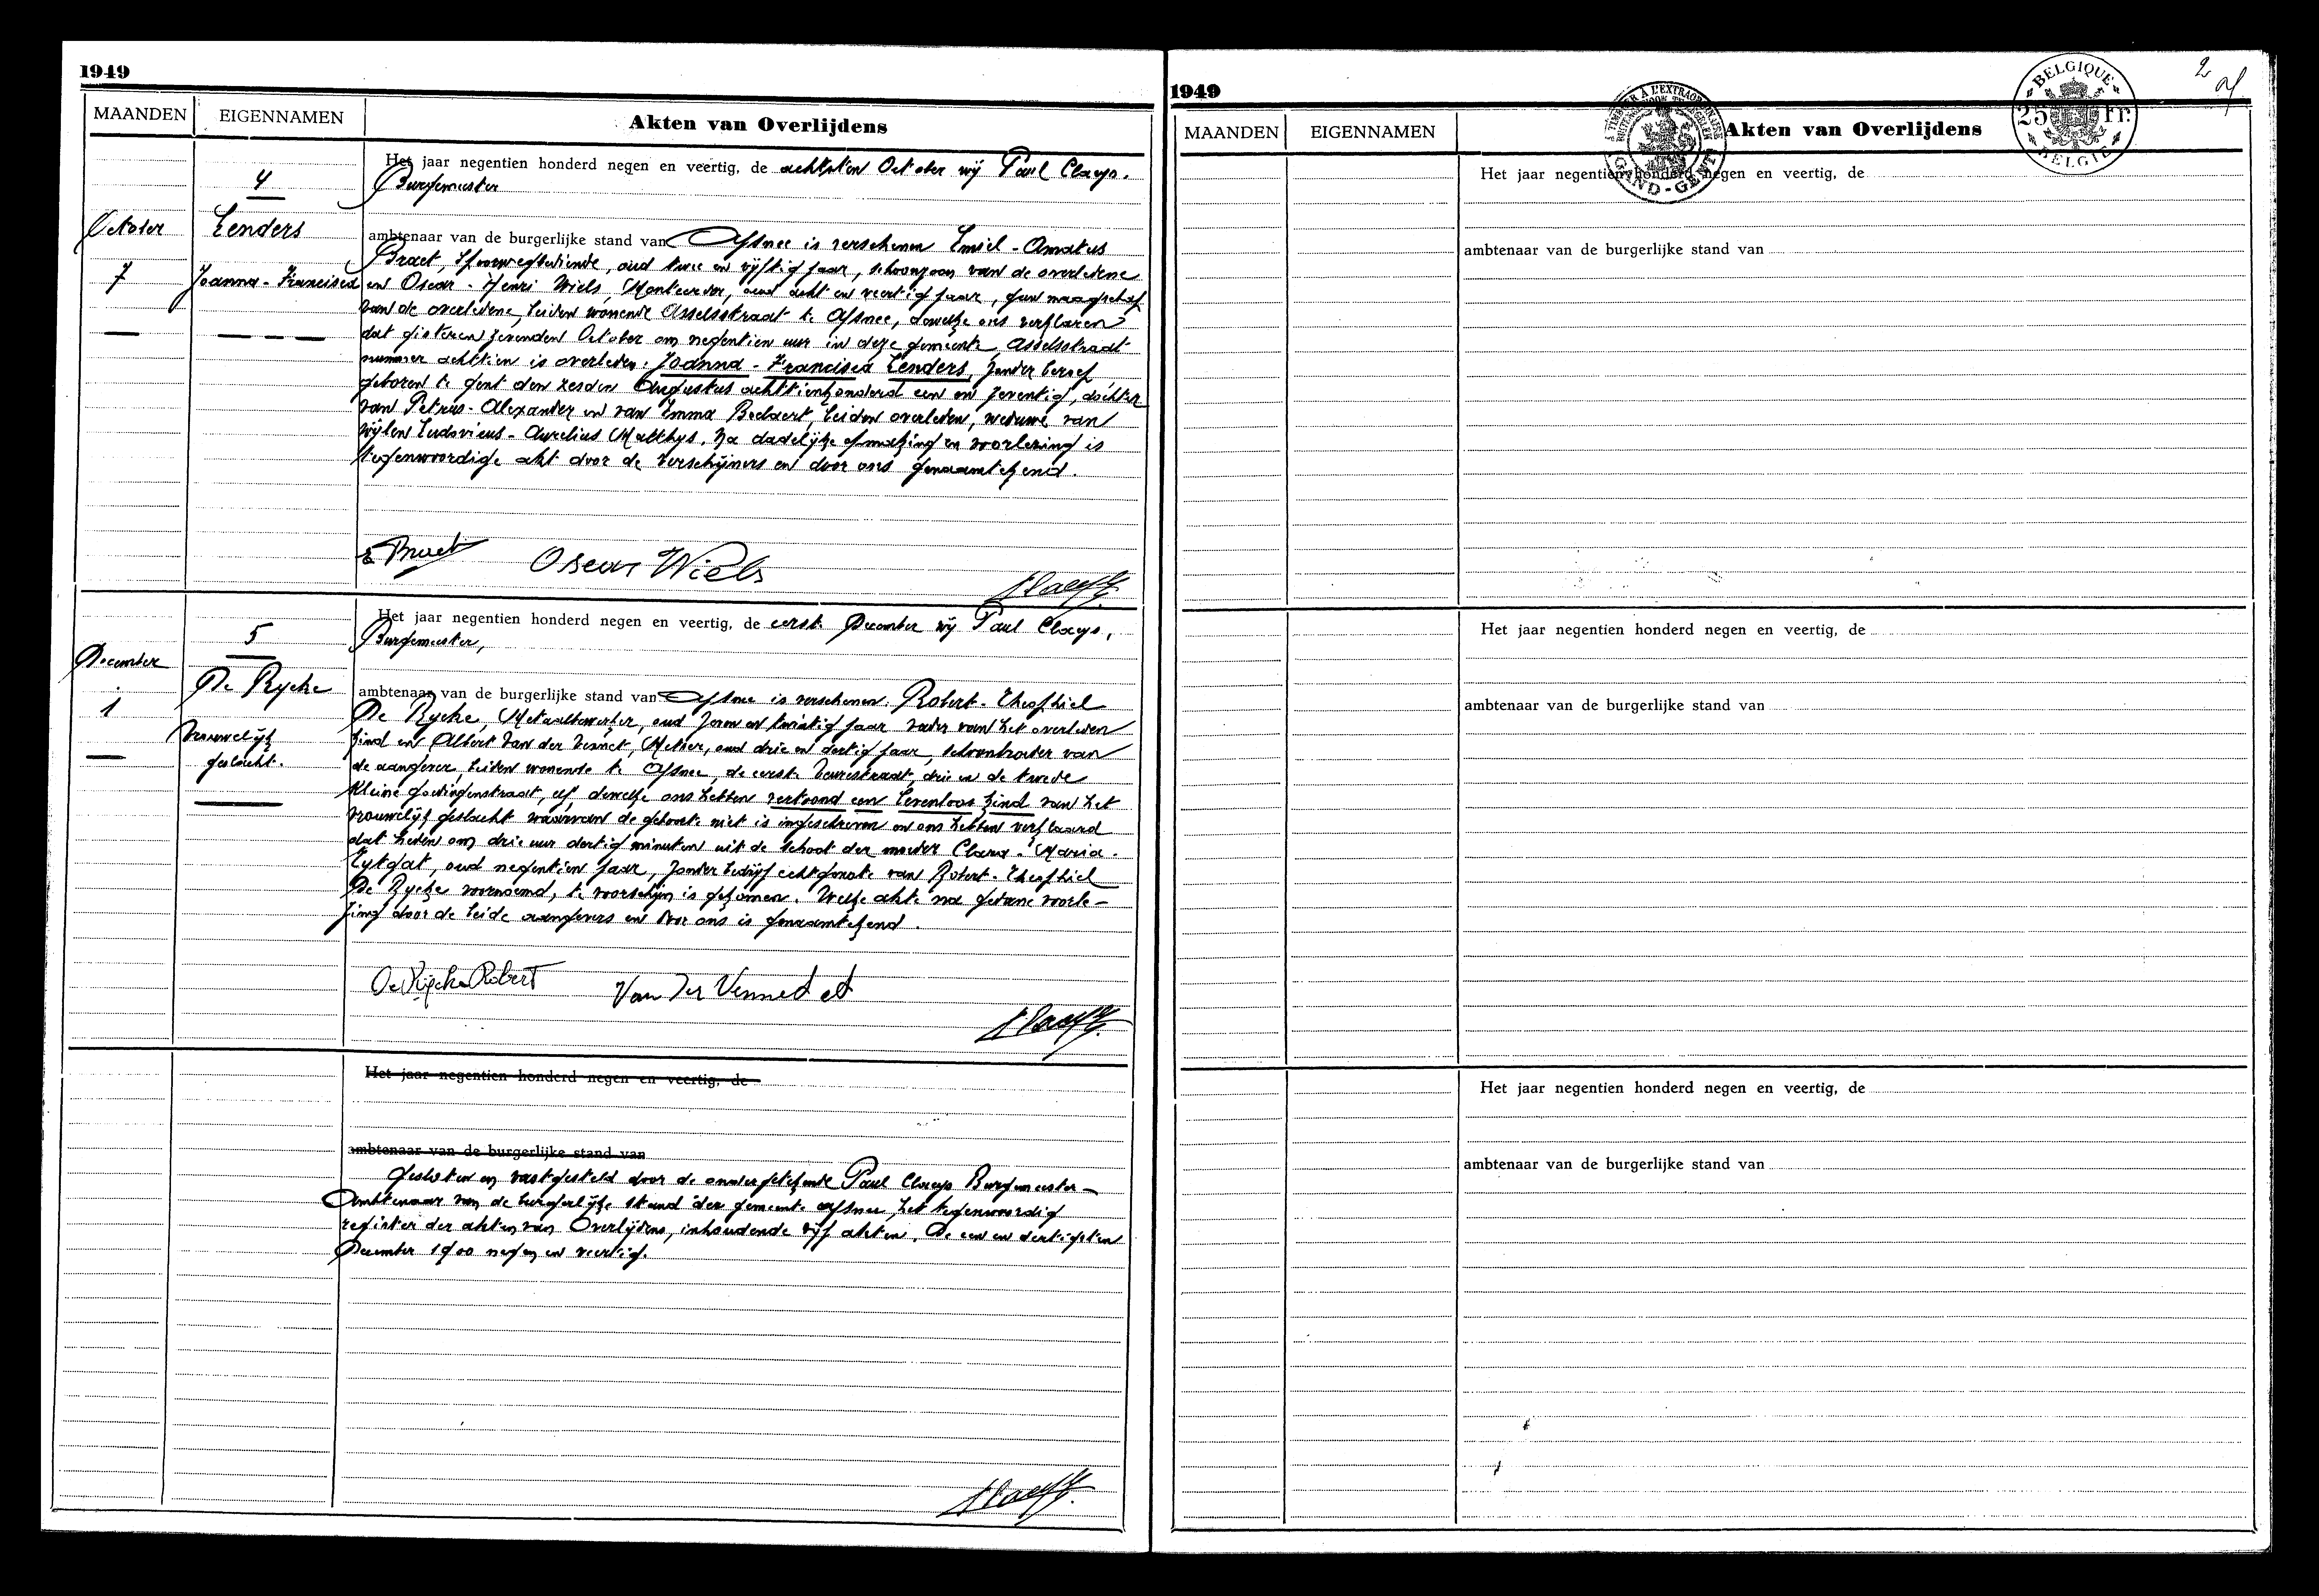 1949
MAANDEN
EIGENNAMEN
Akten van Overlijdens
4
October
Lenders
7
Joanna - Francisca
Het jaar negentien honderd negen en veertig, de achtsten October wij Paul Claeys.
Burgemeester
ambtenaar van de burgerlijke stand van Afsnee is verschenen Emiel - Amatus
Braet, Spoorwegbediende, oud twee en vijftig jaar, schoonzoon van de overledene
en Oscar - Henri Wiels, Monteerder, oud acht en veertig jaar, geen maagschap
van de overledene, beiden wonende Asselsstraat te Afsnee, dewelke ons verklaren
dat gisteren zevenden October om negentien uur in deze gemeente, Asselsstraat
nummer achttien is overleden. Joanna - Francisca Lenders, zonder beroep,
geboren te Gent den zesden Augustus achttienhonderd een en zeventig, dochter
van Petrus - Alexander en van Emma Beelaert, beiden overleden, weduwe van
wijlen Ludovicus - Aurelius Matthys. Na dadelijke opmaking en voorlezing is
tegenwoordige akt door de verschijners en door ons genaamtekend.
E Braet
Oscar Wiels
5
December
De Rycke
1
Vrouwelijk
geslacht.
Het jaar negentien honderd negen en veertig, de eerste December wij Paul Claeys,
Burgemeester,
ambtenaar van de burgerlijke stand van Afsnee is verschenen. Robert - Theophiel
De Rycke, Metaalbewerker, oud zeven en twintig jaar vader van het overleden
kind en Albert Van der Vennet, Metser, oud drie en dertig jaar, schoonbroeder van
de aangever, beiden wonende te Afsnee, de eerste Veurestraat, drie en de tweede
Kleine Goedingenstraat, elf, dewelke ons hebben vertoond een levenloos kind van het
vrouwelijk geslacht waarvan de geboorte niet is ingeschreven en ons hebben verklaard
dat heden om drie uur dertig minuten uit de schoot der moeder Clara - Maria -
Eytgat, oud negentien jaar, zonder bedrijf echtgenote van Robert - Theophiel
De Rycke voornoemd, te voorschijn is gekomen. Welke akte na gedane voorle -
zing door de beide aangevers en door ons is genaamtekend.
De Rycke Robert
Van Der Vennet
Het jaar negentien honderd negen en veertig, de
ambtenaar van de burgerlijke stand van
Gesloten en vastgesteld door de ondergetekende Paul Claeys Burgemeester -
Ambtenaar van de burgerlijke stand der gemeente Afsnee, het tegenwoordig
register der akten van Overlijdens, inhoudende vijf akten. De een en dertigsten
December 1900 negen en veertig.
1949
2
MAANDEN
EIGENNAMEN
Akten van Overlijdens
GAND-GENT
BELGIQUE
25 Fr.
BELGIE
Het jaar negentien honderd negen en veertig, de
ambtenaar van de burgerlijke stand van
Het jaar negentien honderd negen en veertig, de
ambtenaar van de burgerlijke stand van
Het jaar negentien honderd negen en veertig, de
ambtenaar van de burgerlijke stand van